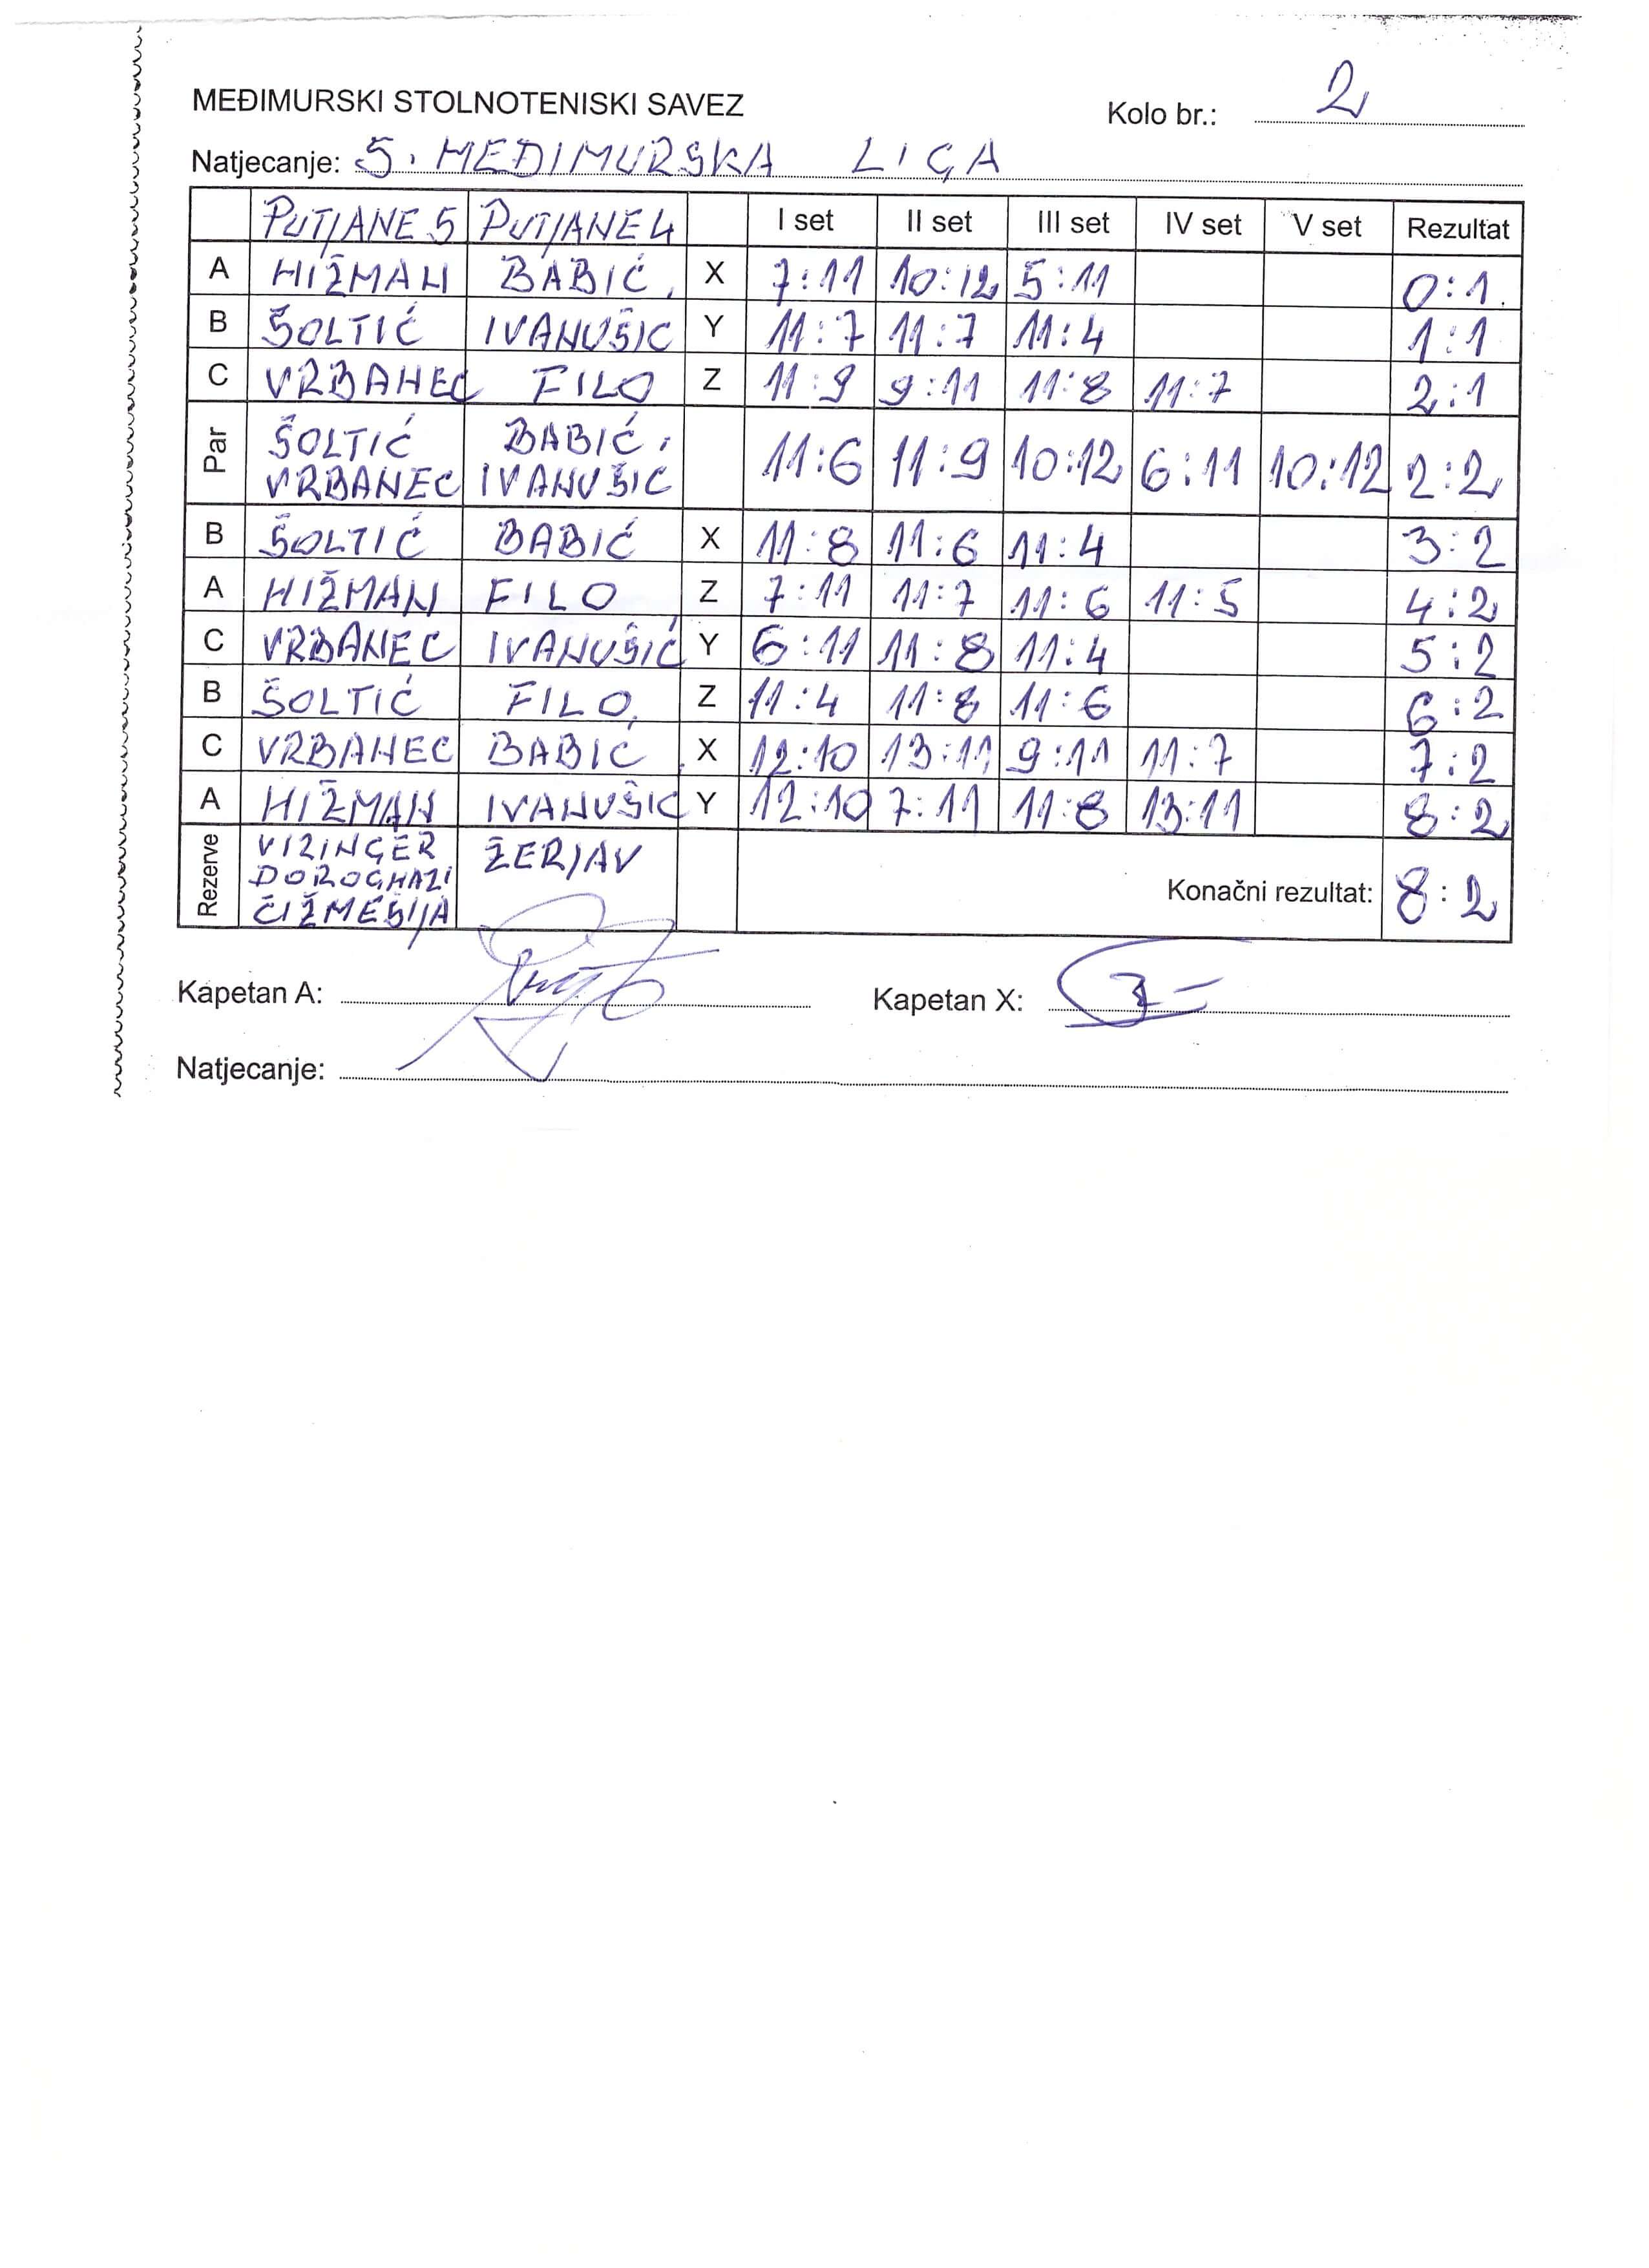 MEĐIMURSKI STOLNOTENISKI SAVEZ Kolo br.: 2
Natjecanje: 5. MEĐIMURSKA LIGA
PUTJANE 5 PUTJANE 4 I set II set III set IV set V set Rezultat
A HIŽMAN BABIĆ X 7:11 10:12 5:11 0:1
B ŠOLTIĆ IVANUŠIC Y 11:7 11:7 11:4 1:1
C VRBANEC FILO Z 11:9 9:11 11:8 11:7 2:1
Par ŠOLTIĆ BABIĆ 11:6 11:9 10:12 6:11 10:12 2:2
VRBANEC IVANUŠIC
B ŠOLTIĆ BABIĆ X 11:8 11:6 11:4 3:2
A HIŽMAN FILO Z 7:11 11:7 11:6 11:5 4:2
C VRBANEC IVANUŠIĆ Y 6:11 11:8 11:4 5:2
B ŠOLTIĆ FILO Z 11:4 11:8 11:6 6:2
C VRBANEC BABIĆ X 12:10 13:11 9:11 11:7 7:2
A HIŽMAN IVANUŠIC Y 12:10 7:11 11:8 13:11 8:2
Rezerve VIZINGER ŽERJAV
DOROGHAZI
ČIŽMEŠIJA
Konačni rezultat: 8:2
Kapetan A: Kapetan X:
Natjecanje: